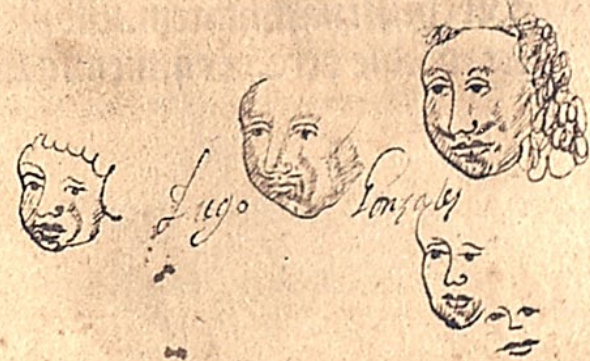 Lugo Gonzales